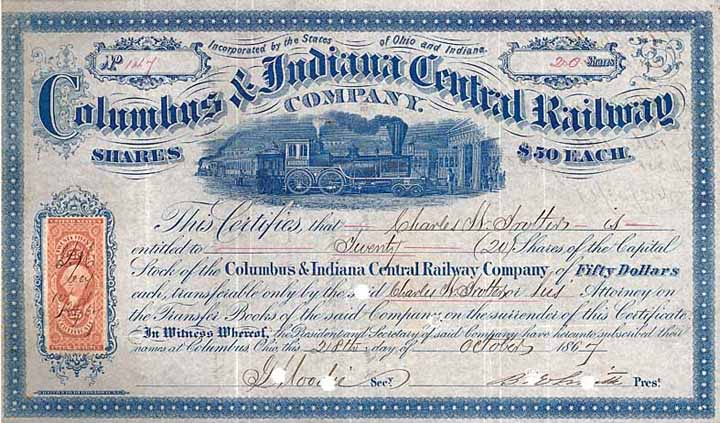 Incorporated by the States of Ohio and Indiana.
Nº 1147
20 Shares
Columbus & Indiana Central Railway
COMPANY.
SHARES $50 EACH.
This Certifies, that Charles W. Trotter is
entitled to Twenty (20) Shares of the Capital
Stock of the Columbus & Indiana Central Railway Company, of Fifty Dollars
each, transferable only by the said Charles W. Trotter or his Attorney on
the Transfer Books of the said Company on the surrender of this Certificate.
In Witness Whereof, the President and Secretary of said Company have hereunto subscribed their
names at Columbus, Ohio, this 28th day of October 1867
J. Moodie Secy. B. E. Smith Pres!